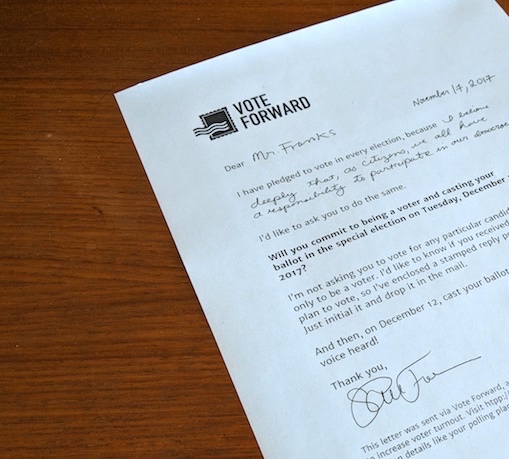 VOTE
FORWARD
November 17, 2017
Dear Mr. Franks
I have pledged to vote in every election, because I believe
deeply that, as citizens, we all have
a responsibility to participate in our democrac
I'd like to ask you to do the same.
Will you commit to being a voter and casting your
ballot in the special election on Tuesday, December
2017?
I'm not asking you to vote for any particular candid
only to be a voter. I'd like to know if you received
plan to vote, so I've enclosed a stamped reply po
Just initial it and drop it in the mail.
And then, on December 12, cast your ballot
voice heard!
Thank you,
This letter was sent via Vote Forward, a
to increase voter turnout. Visit http:/
on details like your polling pla